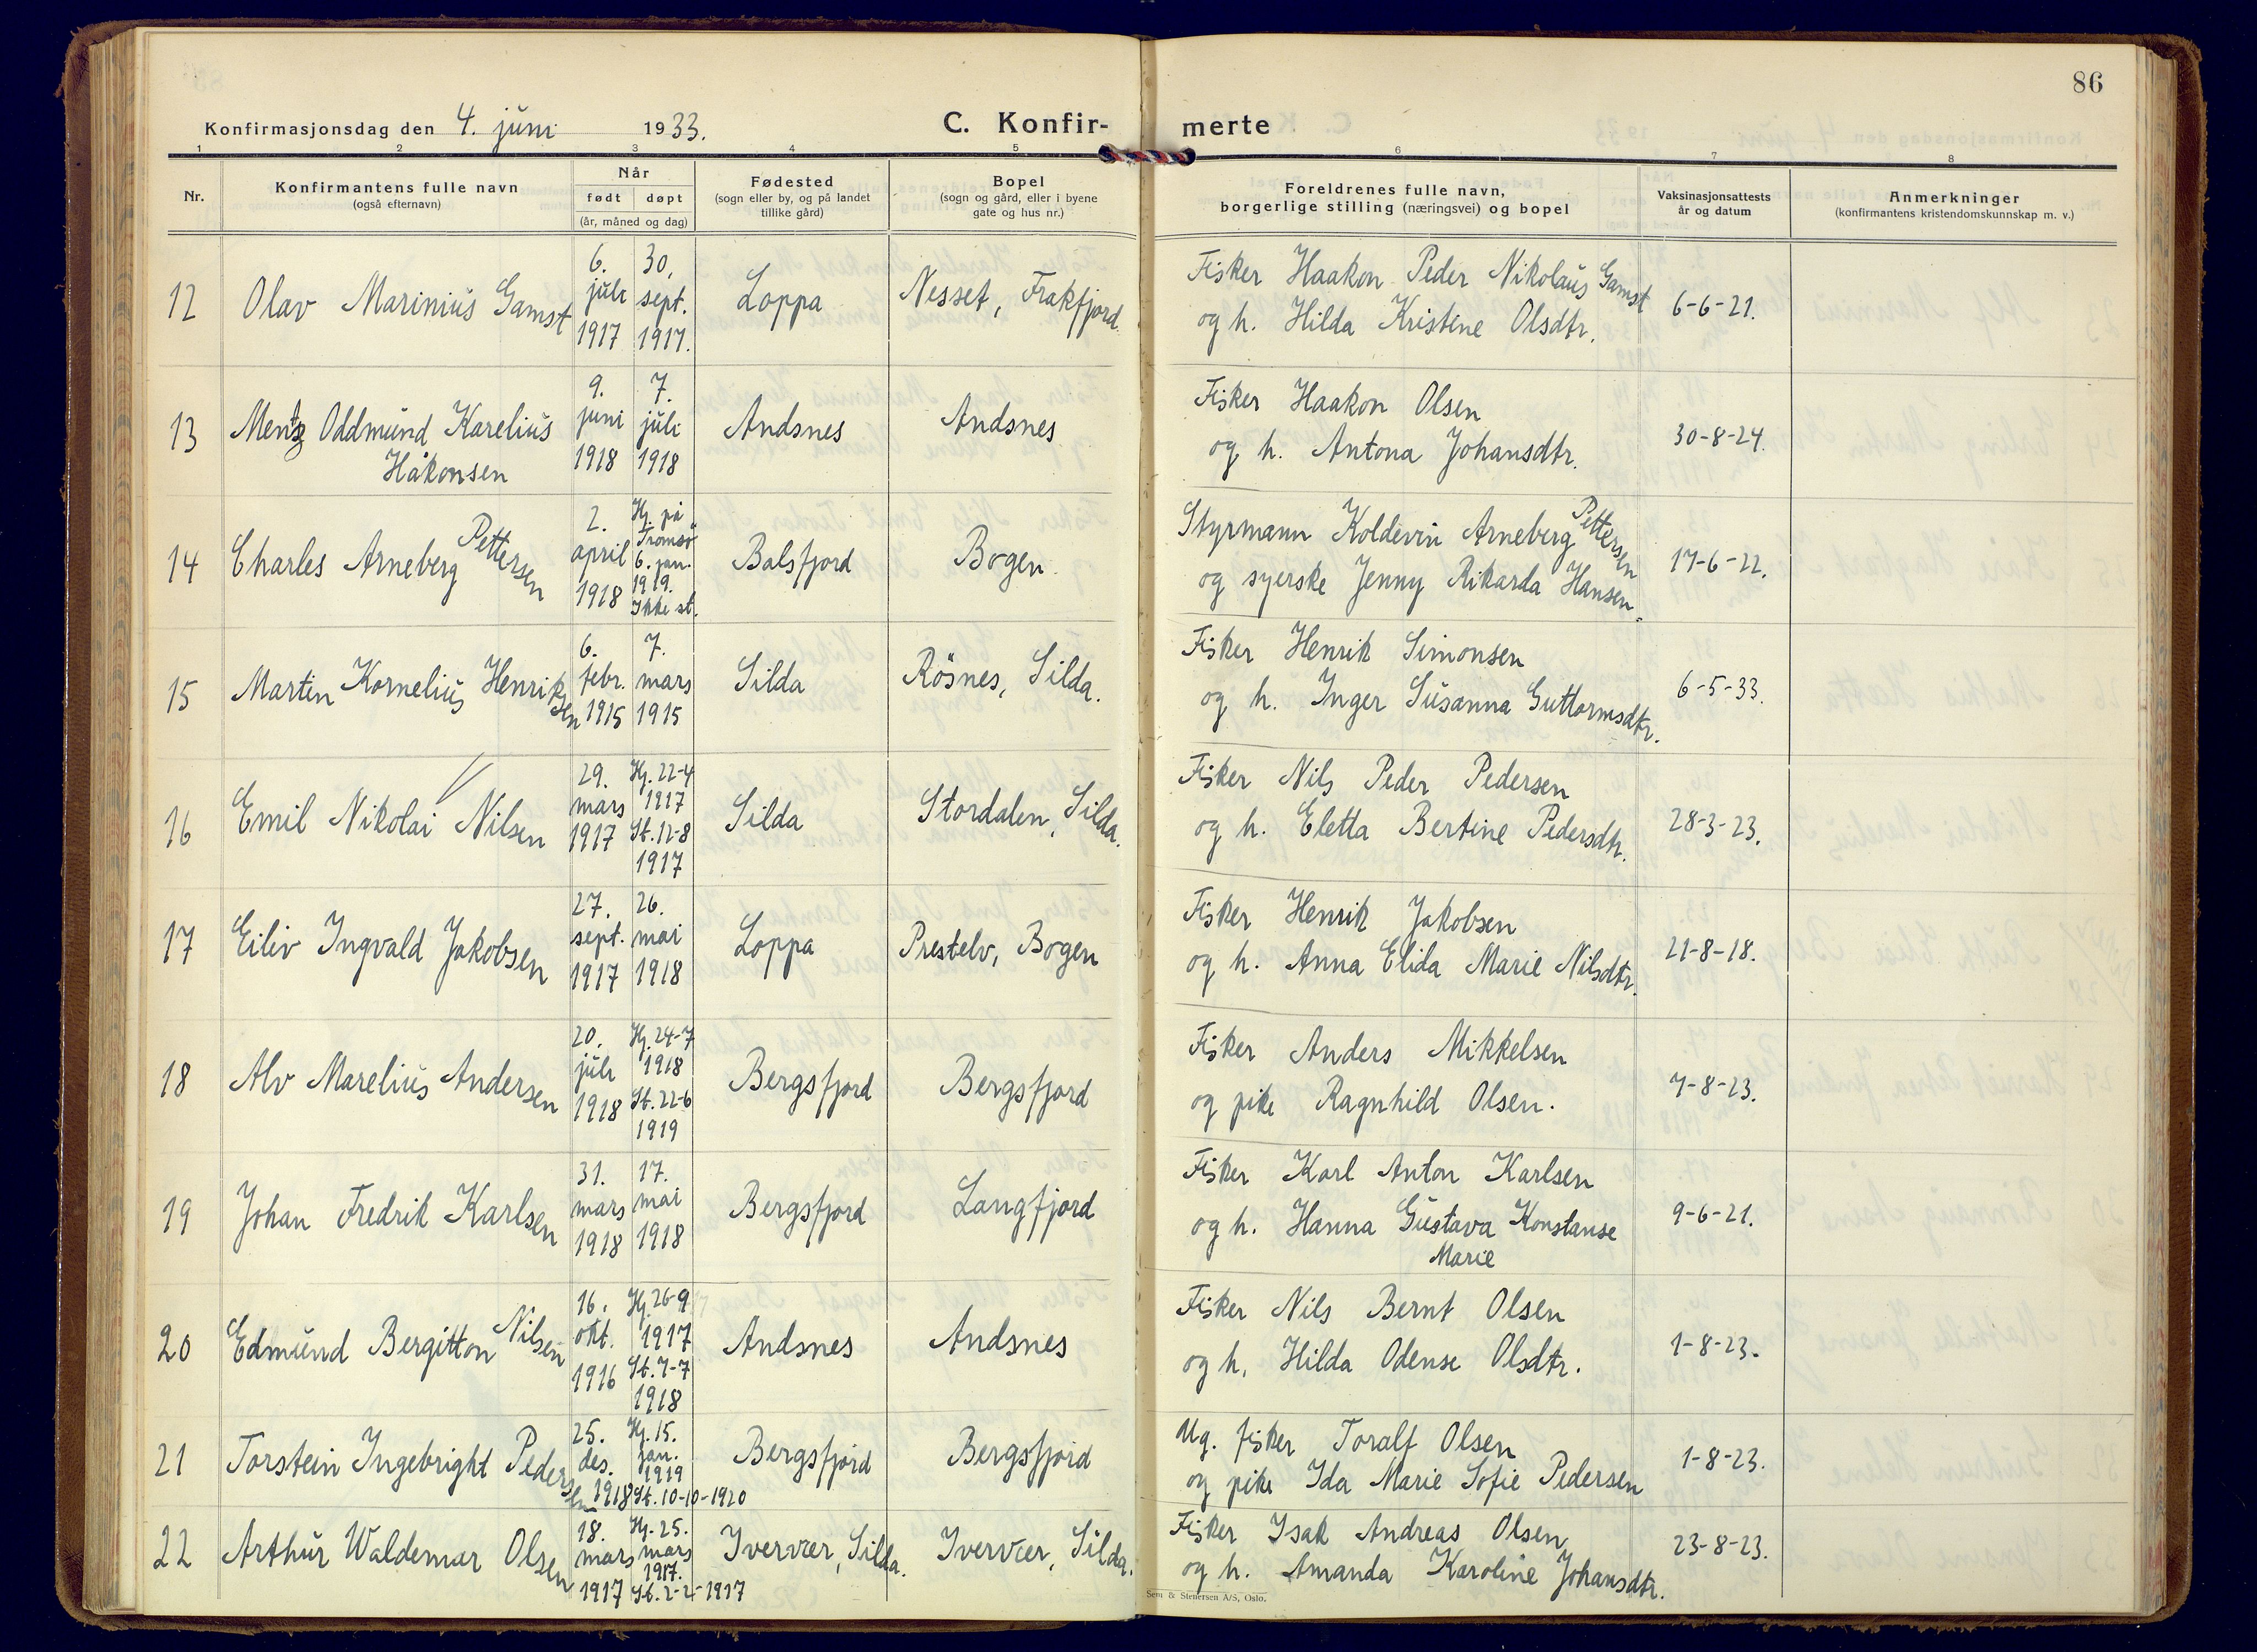 86
Konfirmasjonsdag den 4. juni 1933.
C. Konfir- merte
1 2 3 4 5 6 7 8
Nr.
Konfirmantens fulle navn
(også efternavn)
Når
født døpt
(år, måned og dag)
Fødested
(sogn eller by, og på landet
tillike gård)
Bopel
(sogn og gård, eller i byene
gate og hus nr.)
Foreldrenes fulle navn,
borgerlige stilling (næringsvei) og bopel
Vaksinasjonsattests
år og datum
Anmerkninger
(konfirmantens kristendomskunnskap m. v.)
12
Olav Marinius Gamst
6.
juli
1917
30.
sept.
1917.
Loppa
Nesset, Frakfjord.
Fisker Haakon Peder Nikolaus Gamst
og h. Hilda Kristine Olsdtr.
6-6-21.
13
Mentz Oddmund Karelius
Håkonsen
9.
juni
1918
7.
juli
1918
Andsnes
Andsnes
Fisker Haakon Olsen
og h. Antona Johansdtr.
30-8-24.
14
Charles Arneberg Pettersen
2.
april
1918
Hj. på
Tromsö
6. jan.
1919.
Ikke st.
Balsfjord
Bogen
Styrmann Koldevin Arneberg Pettersen
og syerske Jenny Rikarda Hansen.
17-6-22.
15
Martin Kornelius Henriksen
6.
febr.
1915
7.
mars
1915
Silda
Rösnes, Silda.
Fisker Henrik Simonsen
og h. Inger Susanna Guttormsdtr.
6-5-33.
16
Emil Nikolai Nilsen
29.
mars
1917
Hj. 22-4
1917
St. 12-8
1917
Silda
Stordalen, Silda.
Fisker Nils Peder Pedersen
og h. Eletta Bertine Pedersdtr.
28-3-23.
17
Eiliv Ingvald Jakobsen
27.
sept.
1917
26.
mai
1918
Loppa
Prestelv, Bogen
Fisker Henrik Jakobsen
og h. Anna Elida Marie Nilsdtr.
21-8-18.
18
Alv Marelius Andersen
20.
juli
1918
Hj. 24-7
1918
St. 22-6
1919
Bergsfjord
Bergsfjord
Fisker Anders Mikkelsen
og pike Ragnhild Olsen.
7-8-23.
19
Johan Fredrik Karlsen
31.
mars
1918
17.
mai
1918
Bergsfjord
Langfjord
Fisker Karl Anton Karlsen
og h. Hanna Gustava Konstanse
Marie
9-6-21.
20
Edmund Bergitton Nilsen
16.
okt.
1916
Hj. 26-9
1917
St. 7-7
1918
Andsnes
Andsnes
Fisker Nils Bernt Olsen
og h. Hilda Odense Olsdtr.
1-8-23.
21
Torstein Ingebright Pedersen
25.
des.
1918
Hj. 15.
jan.
1919
St. 10-10-1920
Bergsfjord
Bergsfjord
Ug. fisker Toralf Olsen
og pike Ida Marie Sofie Pedersen
1-8-23.
22
Arthur Waldemar Olsen
18.
mars
1917
Hj. 25.
mars
1917.
St. 2-2-1917
Ivervær, Silda.
Ivervær, Silda.
Fisker Isak Andreas Olsen
og h. Amanda Karoline Johansdtr.
23-8-23.
Sem & Stenersen A/S, Oslo.